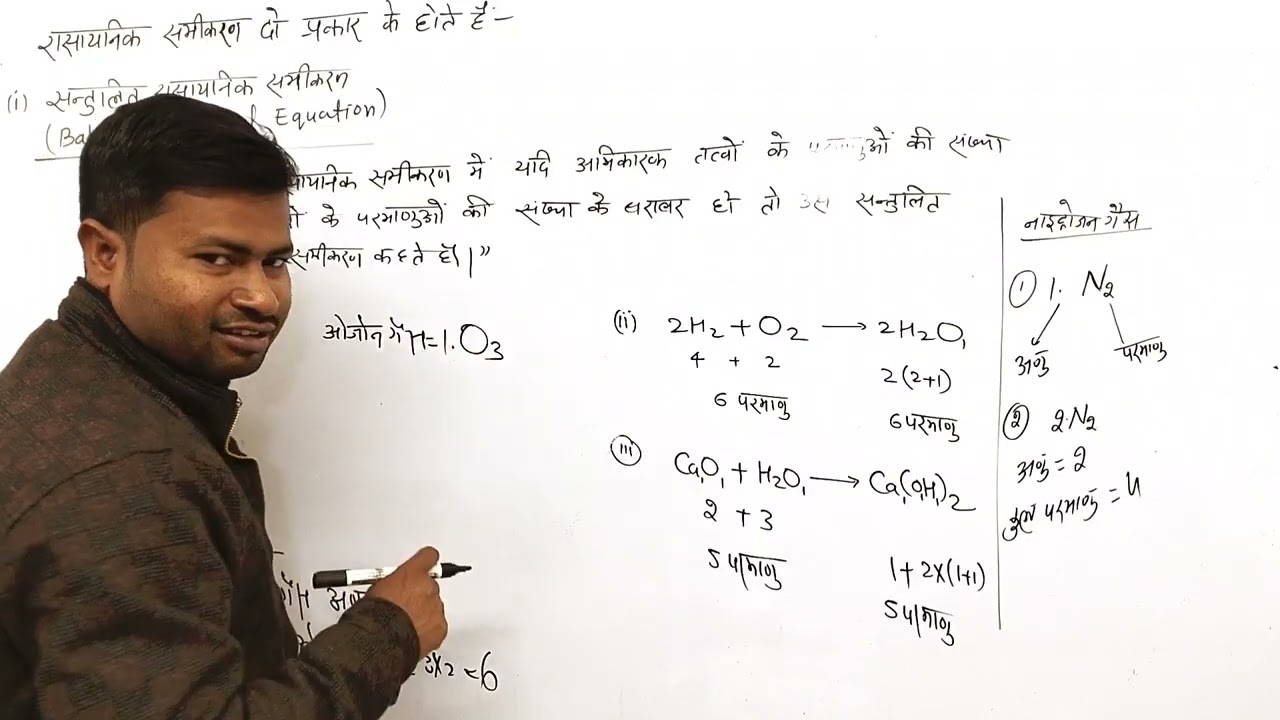 रासायनिक समीकरण दो प्रकार के होते हैं:-
(i) सन्तुलित रासायनिक समीकरण
Equation)
समीकरण में यदि अभिकारक तत्वों के की संख्या
के परमाणुओं की संख्या के बराबर हो तो उसे सन्तुलित
समीकरण कहते हैं।"
ओजोन गैस = 1. O3
= 3x2 = 6
(ii) 2H2 + O2 → 2H2O1
4 + 2
2(2+1)
6 परमाणु
6 परमाणु
(iii) Ca1O1 + H2O1 → Ca1(O1H1)2
2 + 3
5 परमाणु
1 + 2x(1+1)
5 परमाणु
नाइट्रोजन गैस
① 1. N2
अणु
परमाणु
② 2.N2
अणु = 2
कुल परमाणु = 4